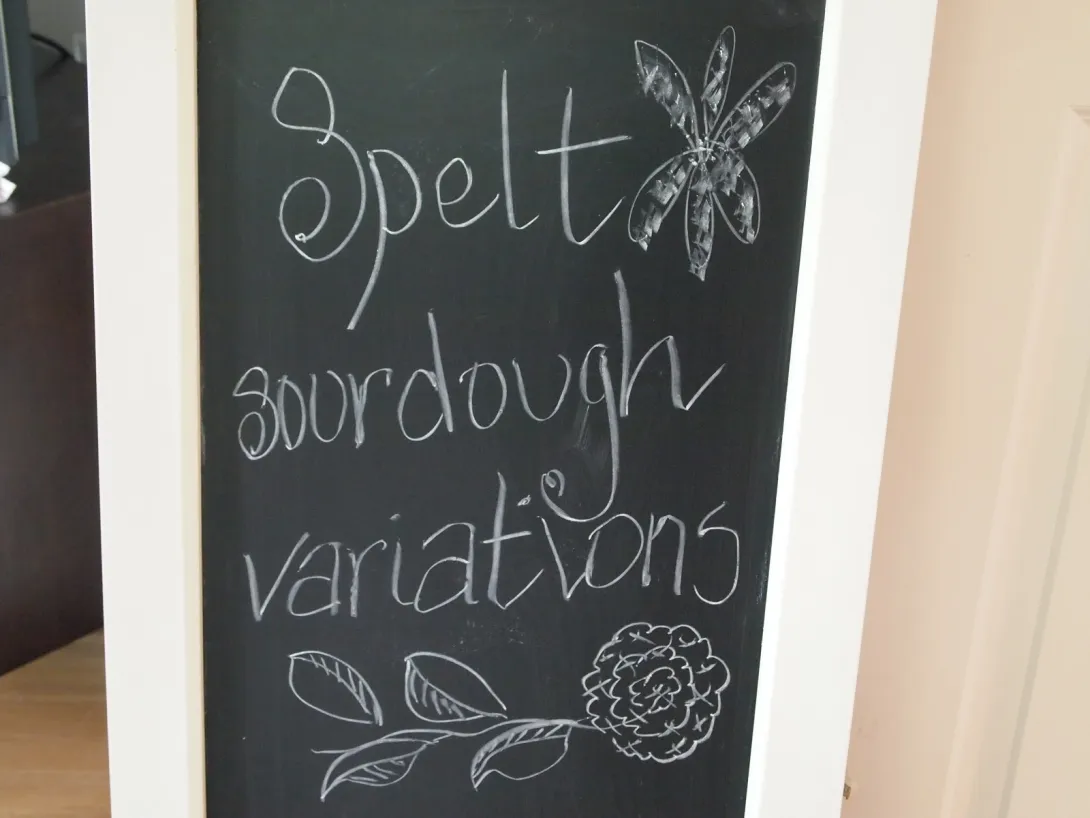 Spelt
sourdough
variations